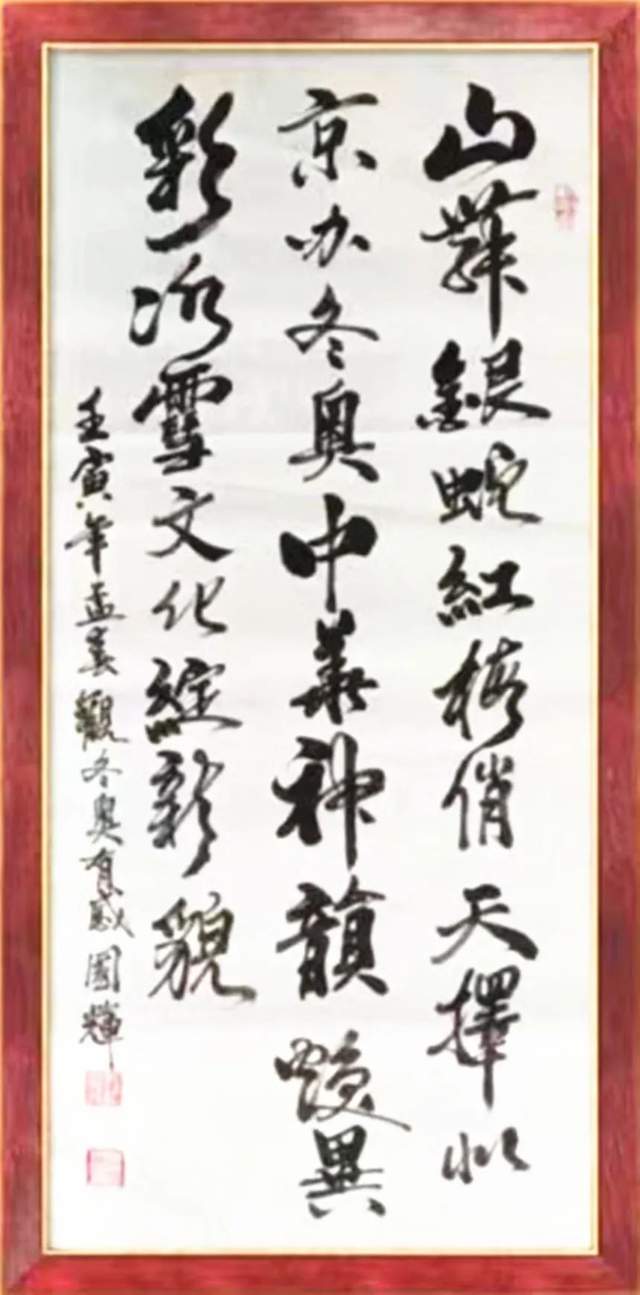 山舞銀蛇紅梅俏天擇北
京办冬奥中華神韻煥異
彩冰雪文化綻新貌
壬寅年孟春觀冬奥有感國輝